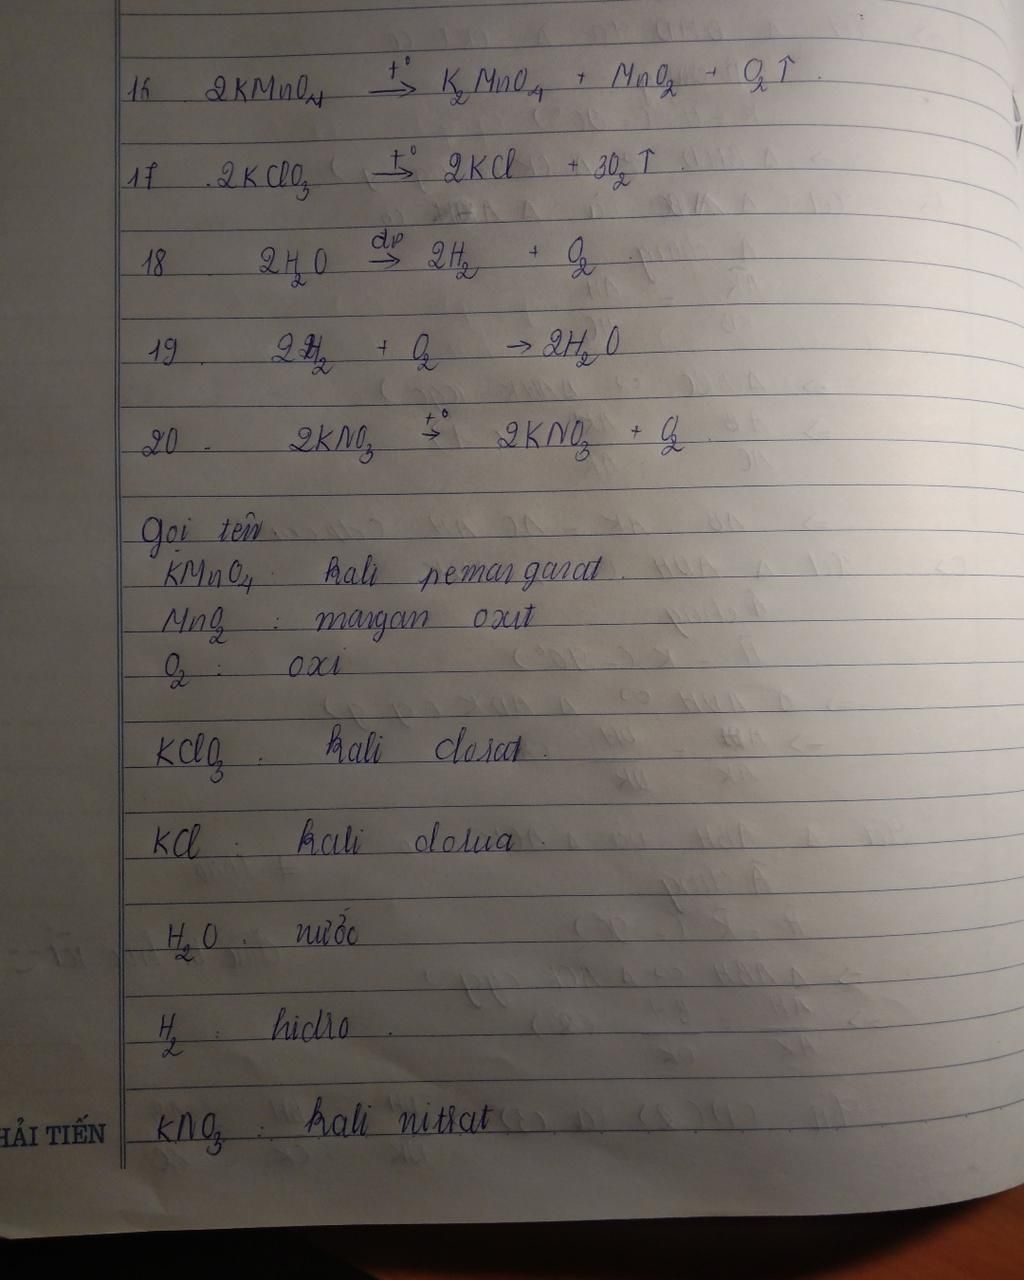 16 2KMnO₄ t°→ K₂MnO₄ + MnO₂ + O₂↑
17 2KClO₃ t°→ 2KCl + 3O₂↑
18 2H₂O đp→ 2H₂ + O₂
19 2H₂ + O₂ → 2H₂O
20 2KNO₃ t°→ 2KNO₃ + O₂
Gọi tên
KMnO₄: kali pemangarat
MnO₂: mangan oxit
O₂: oxi
KClO₃: kali clorat
KCl: kali clorua
H₂O: nước
H₂: hidro
KNO₃: kali nitrat
HẢI TIẾN